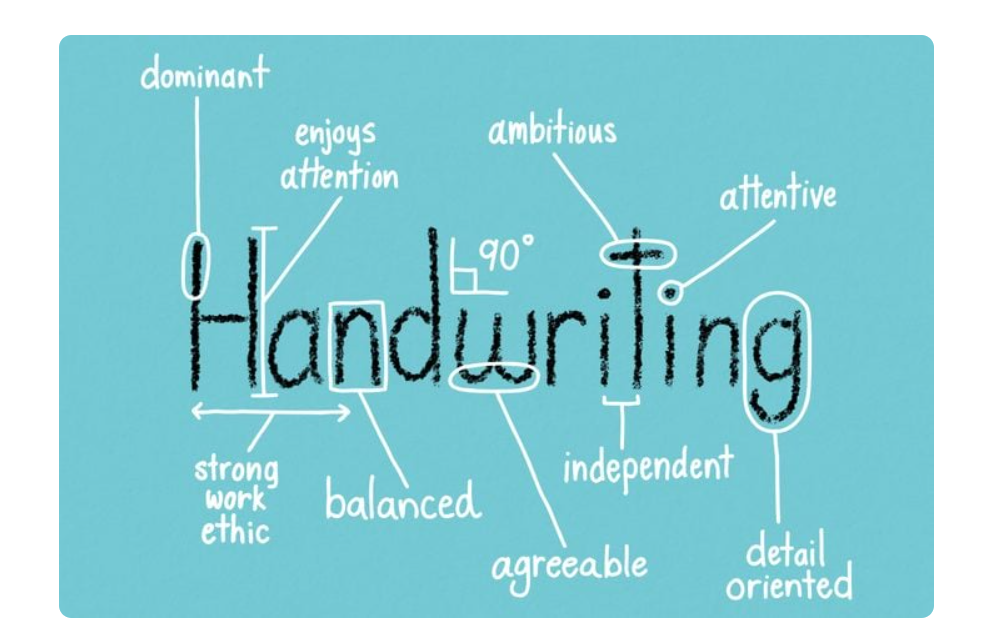 dominant
enjoys
attention
ambitious
attentive
90°
Handwriting
strong
work
ethic
balanced
independent
agreeable
detail
oriented